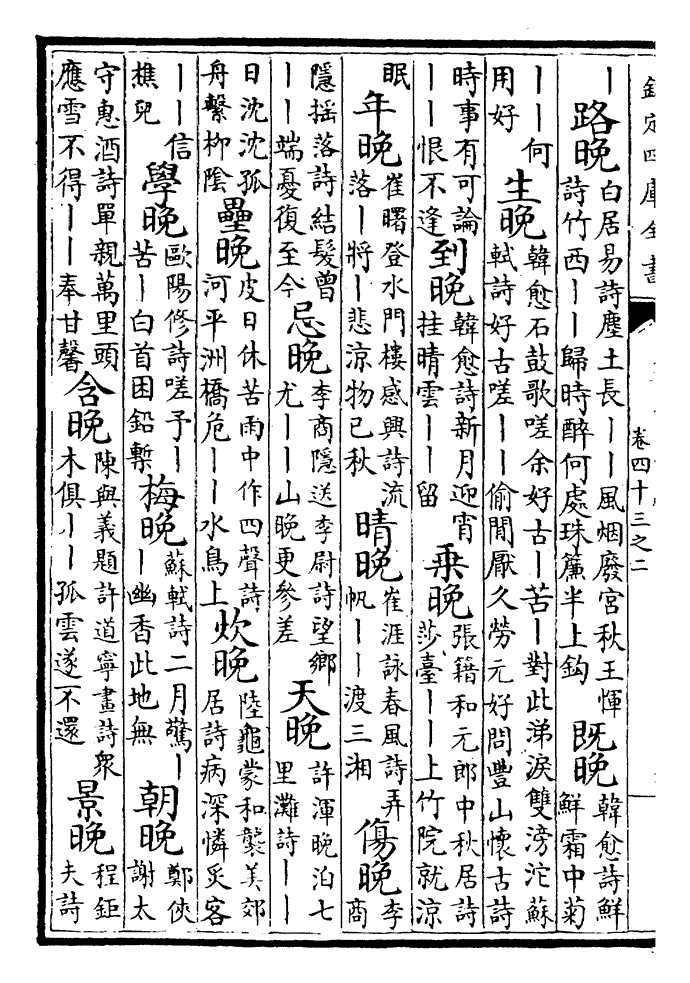 欽定四庫全書
卷四十三之二
丨
路晚
白居易詩塵土長丨丨風烟廢宮秋王惲
詩竹西丨丨歸時醉何處珠簾半上鈎
既晚
韓愈詩鮮
鮮霜中菊
丨丨何
用好
生晚
韓愈石鼓歌嗟余好古丨苦丨對此涕淚雙滂沱蘇
軾詩好古嗟丨丨偷閒厭久勞元好問豐山懷古詩
時事有可論
丨丨恨不逢
到晚
韓愈詩新月迎宵
挂晴雲丨丨留
乗晚
張籍和元郎中秋居詩
莎臺丨丨上竹院就涼
眠
年晚
崔曙登水門樓感興詩流
落丨將丨悲涼物已秋
晴晚
崔涯詠春風詩弄
帆丨丨渡三湘
傷晚
李
商
隱揺落詩結髮曾
丨丨端憂復至今
忌晚
李商隱送李尉詩望鄉
尤丨丨山晚更參差
天晚
許渾晚泊七
里灘詩丨丨
日沈沈孤
舟繫柳陰
壘晚
皮日休苦雨中作四聲詩
河平洲橋危丨丨水鳥上
炊晚
陸龜蒙和襲美郊
居詩病深憐炙客
丨丨信
樵兒
學晚
歐陽修詩嗟予丨丨
苦丨白首困鉛槧
梅晚
蘇軾詩二月驚丨
丨幽香此地無
朝晚
鄭俠
謝太
守惠酒詩單親萬里頭
應雪不得丨丨奉甘馨
含晚
陳與義題許道寧畫詩衆
木俱丨丨孤雲遂不還
景晚
程鉅
夫詩